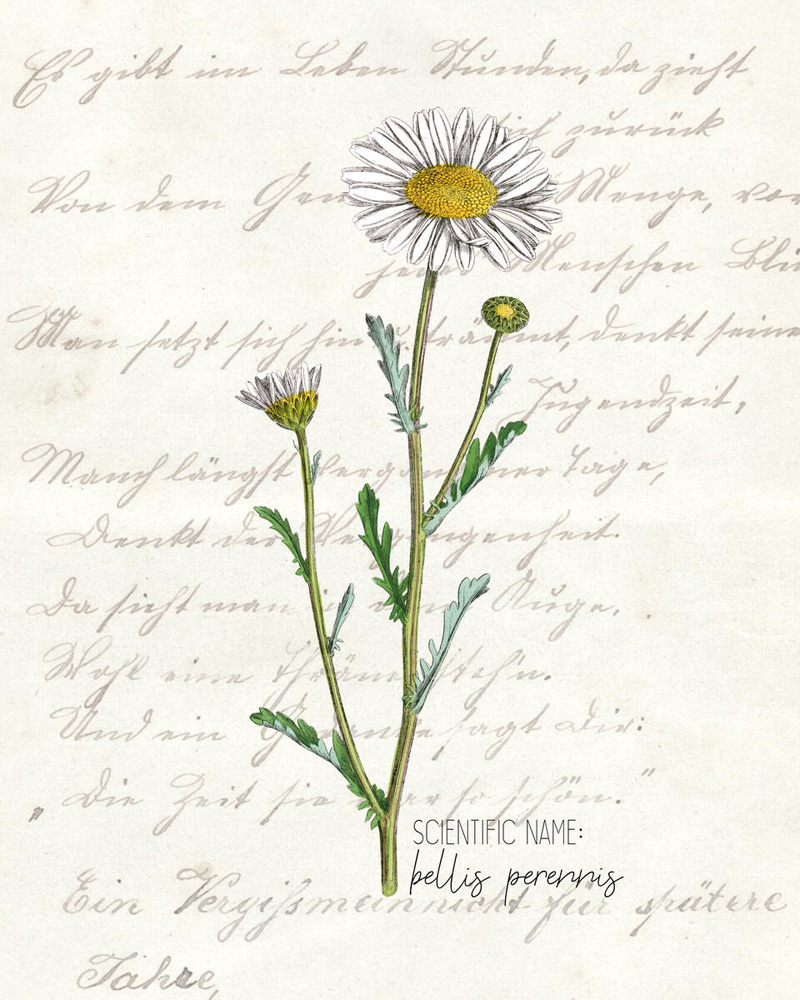 Es gibt im Leben Stunden, da zieht
sich zurück
Von dem Menge, vor
jedes Menschen Blü
Man setzt sich hin u. träumt, denkt seine
Jugendzeit,
Manch längst vergangener Tage,
Denkt der Vergangenheit.
Da sieht man in dem Auge,
Wohl eine Thräne steh'n.
Und ein Gedanke sagt Dir:
„Die Zeit sie war so schön."
SCIENTIFIC NAME:
bellis perennis
Ein Vergißmeinnicht für spätere
Jahre,